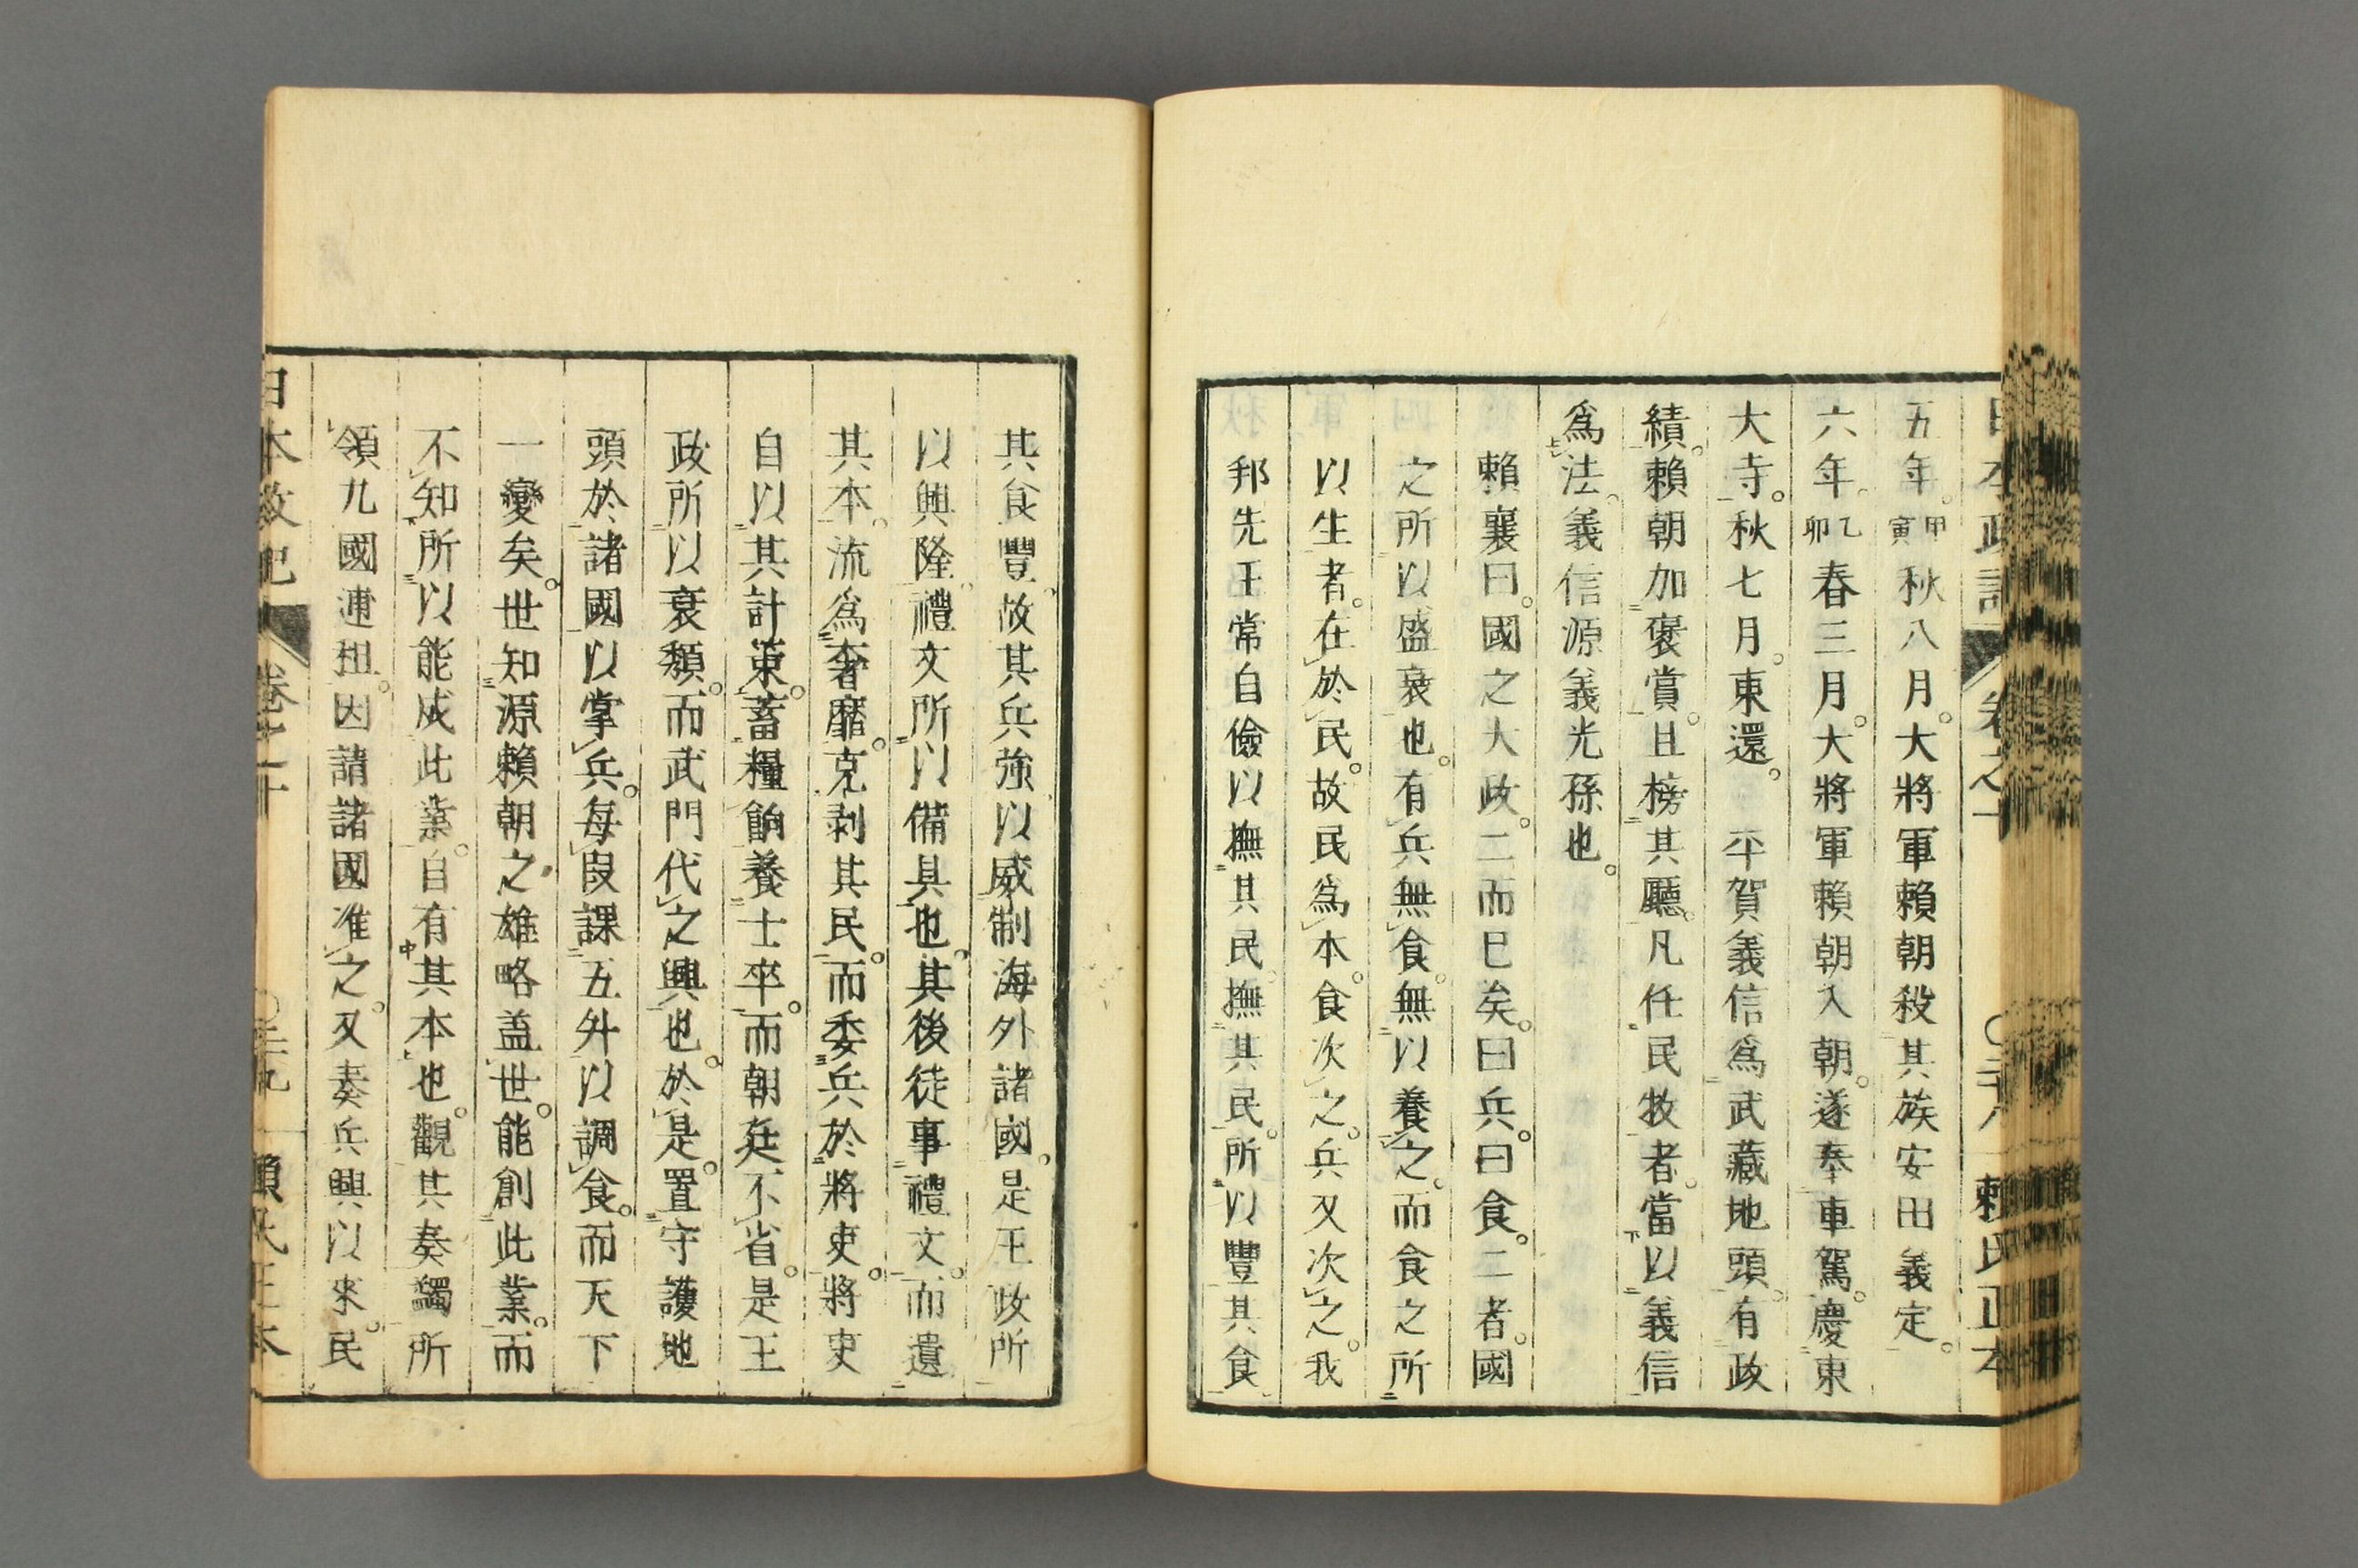 日本政記 卷之十 〇三十八 賴氏正本
五年。甲寅秋八月。大將軍賴朝殺其族安田義定。
六年。乙卯春三月。大將軍賴朝入朝。遂奉車駕。慶東
大寺。秋七月。東還。平賀義信爲武藏地頭。有政
績。賴朝加褒賞。且榜其廳。凡任民牧者。當以義信
爲法。義信源義光孫也。
賴襄曰。國之大政。二而已矣。曰兵。曰食。二者。國
之所以盛衰也。有兵無食。無以養之。而食之所
以生者。在於民。故民爲本。食次之。兵又次之。我
邦先王常自儉以撫其民。撫其民。所以豐其食
其食豐。故其兵強以威制海外諸國。是王政所
以興隆。禮文所以備具也。其後徒事禮文。而遺
其本。流爲奢靡。克剥其民。而委兵於將吏。將吏
自以其計策。蓄糧餉養士卒。而朝廷不省。是王
政所以衰頽。而武門代之興也。於是。置守護地
頭於諸國以掌兵。每段課五升以調食。而天下
一變矣。世知源賴朝之雄略蓋世。能創此業。而
不知所以能成此業。自有其本也。觀其奏蠲所
領九國逋租。因請諸國准之。又奏兵興以來。民
日本政記 卷之十 〇三十九 賴氏正本